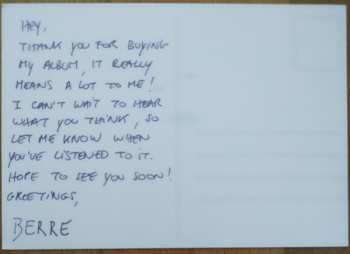 HEY,
THANK YOU FOR BUYING
MY ALBUM, IT REALLY
MEANS A LOT TO ME!
I CAN'T WAIT TO HEAR
WHAT YOU THINK, SO
LET ME KNOW WHEN
YOU'VE LISTENED TO IT.
HOPE TO SEE YOU SOON!
GREETINGS,
BERRE